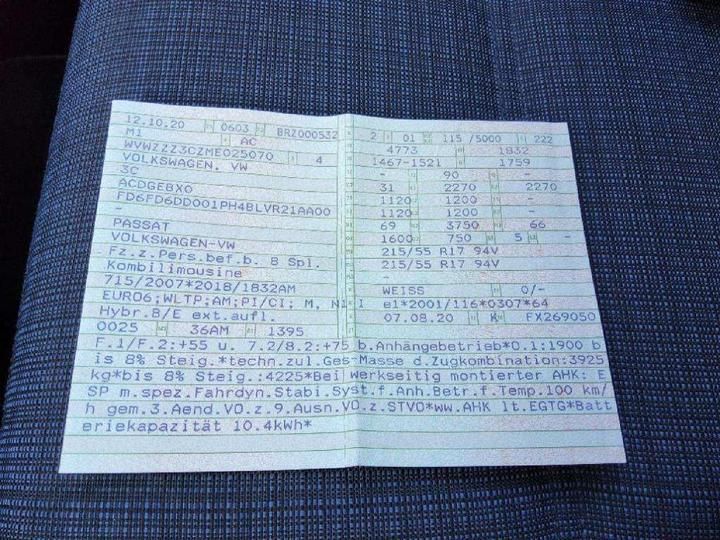 12.10.20 0603 BRZ000532 2 01 115 /5000 222
M1 AC 4773 1832
WVWZZZ3CZME025070 4 1467-1521 1759
VOLKSWAGEN, VW - 90 -
3C 31 2270 2270
ACDGEBX0 1120 1200 -
FD6FD6DD001PH4BLVR21AA00 1120 1200 -
- 69 3750 66
PASSAT 1600 750 5 -
VOLKSWAGEN-VW 215/55 R17 94V
Fz.z.Pers.bef.b. 8 Spl. 215/55 R17 94V
Kombilimousine
715/2007*2018/1832AM WEISS 0/-
EURO6;WLTP;AM;PI/CI; M, N1 I e1*2001/116*0307*64
Hybr.B/E ext.aufl. 07.08.20 K FX269050
0025 36AM 1395
F.1/F.2:+55 u. 7.2/8.2:+75 b.Anhängebetrieb*O.1:1900 b
is 8% Steig.*techn.zul.Ges-Masse d.Zugkombination:3925
kg*bis 8% Steig.:4225*Bei werkseitig montierter AHK: E
SP m.spez.Fahrdyn.Stabi.Syst.f.Anh.Betr.f.Temp.100 km/
h gem.3.Aend.VO.z.9.Ausn.VO.z.STVO*ww.AHK lt.EGTG*Batt
eriekapazität 10.4kWh*